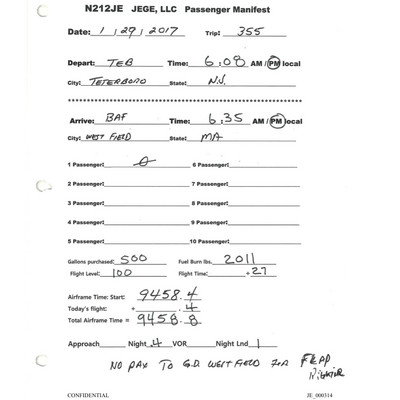 N212JE JEGE, LLC Passenger Manifest
Date: 1 / 29 / 2017 Trip: 355
Depart: TEB Time: 6:08 AM / PM local
City: TETERBORO State: N.J.
Arrive: BAF Time: 6:35 AM / PM local
City: WESTFIELD State: MA
1 Passenger: 0 6 Passenger:
2 Passenger: 7 Passenger:
3 Passenger: 8 Passenger:
4 Passenger: 9 Passenger:
5 Passenger: 10 Passenger:
Gallons purchased: 500 Fuel Burn lbs. 2011
Flight Level: 100 Flight Time: +27
Airframe Time: Start: 9458.4
Today's flight: + .4
Total Airframe Time = 9458.8
Approach Night .4 VOR Night Lnd 1
NO PAX TO G.D. WESTFIELD FOR
CONFIDENTIAL JE_000314